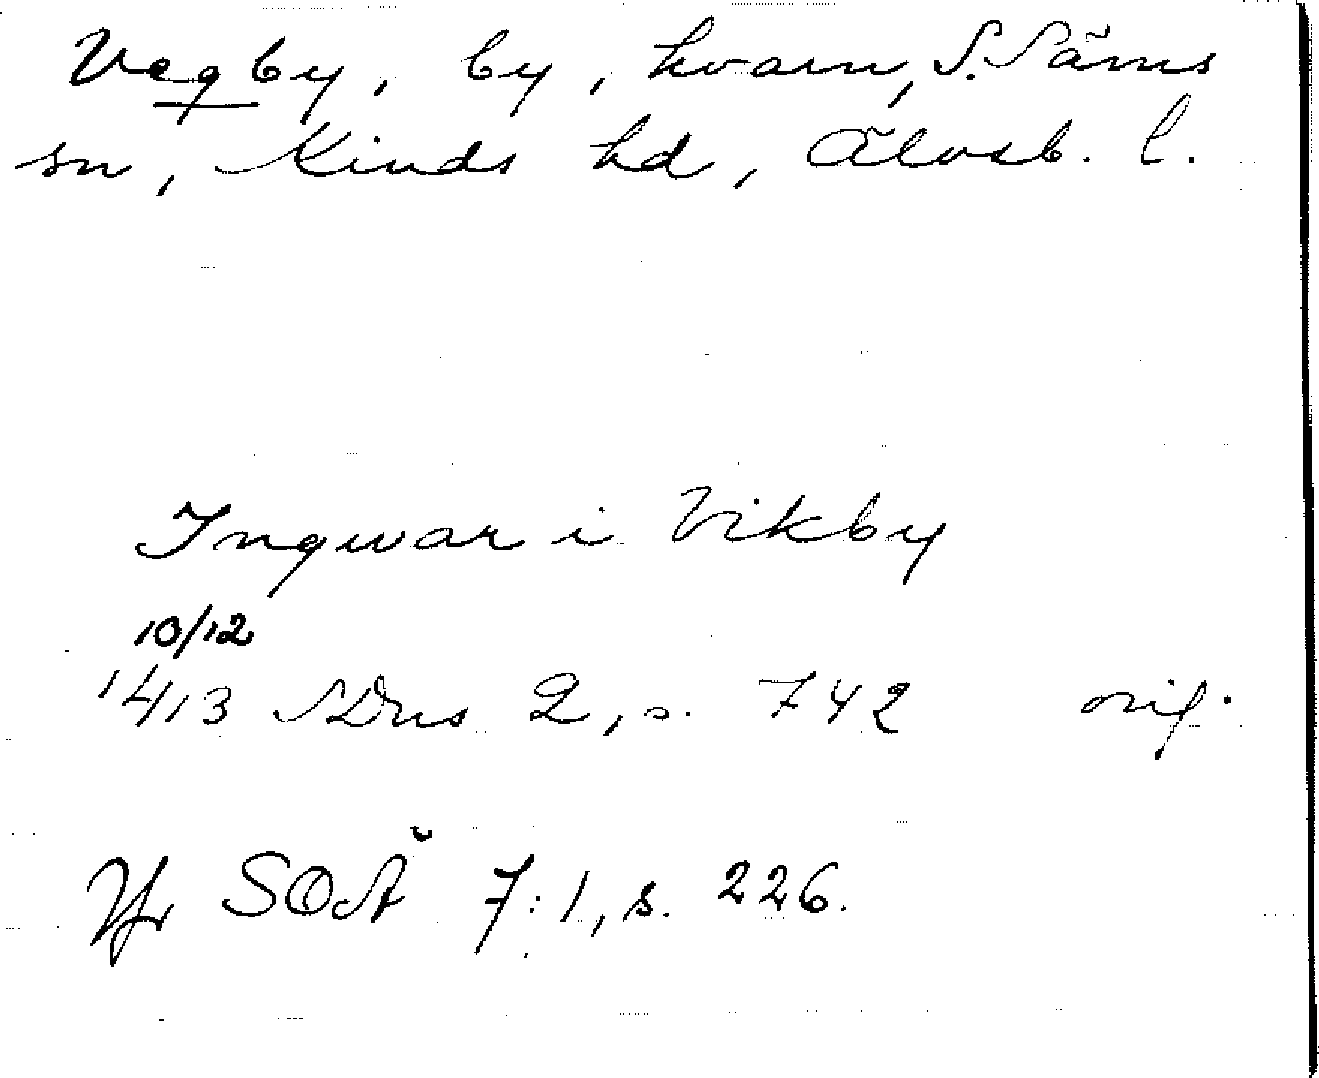 Vegby, by, kvarn, S. Säms
sn, Kinds hd, Älvsb. l.
Ingwar i Vikby
10/12
1413 SDns 2, s. 742 orig.
Jfr SOÄ 7:1, s. 226.